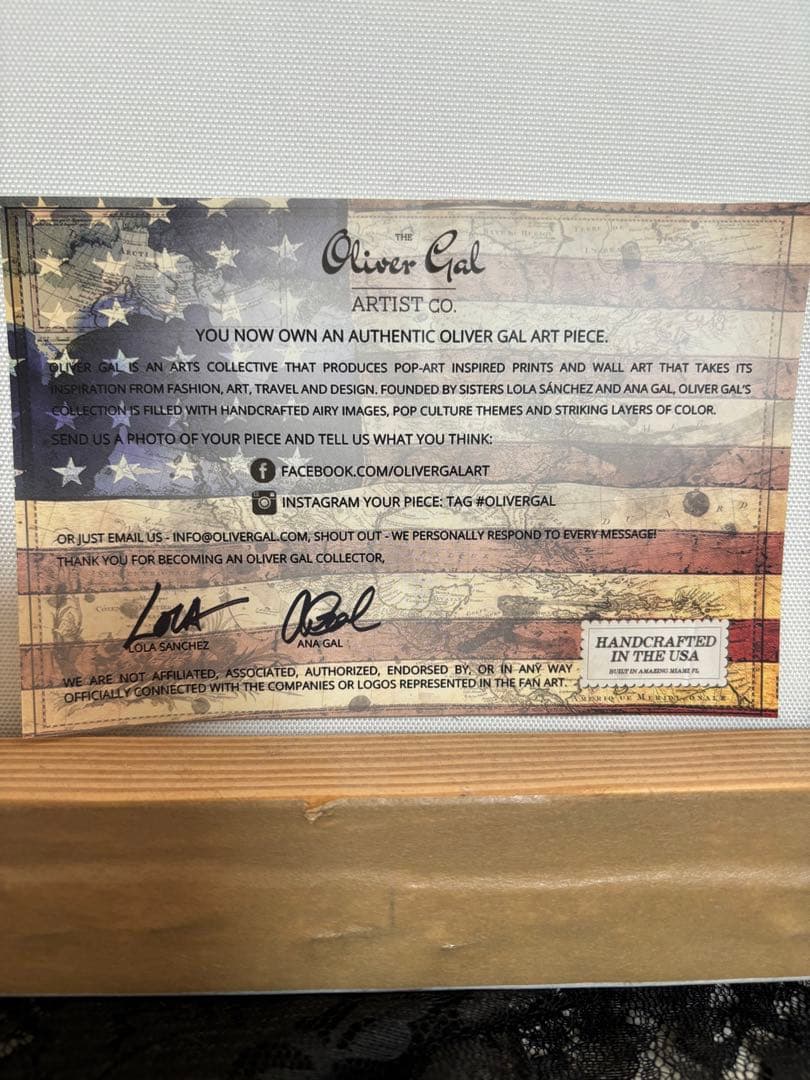 THE
Oliver Gal
ARTIST CO.
YOU NOW OWN AN AUTHENTIC OLIVER GAL ART PIECE.
OLIVER GAL IS AN ARTS COLLECTIVE THAT PRODUCES POP-ART INSPIRED PRINTS AND WALL ART THAT TAKES ITS
INSPIRATION FROM FASHION, ART, TRAVEL AND DESIGN. FOUNDED BY SISTERS LOLA SÁNCHEZ AND ANA GAL, OLIVER GAL'S
COLLECTION IS FILLED WITH HANDCRAFTED AIRY IMAGES, POP CULTURE THEMES AND STRIKING LAYERS OF COLOR.
SEND US A PHOTO OF YOUR PIECE AND TELL US WHAT YOU THINK:
FACEBOOK.COM/OLIVERGALART
INSTAGRAM YOUR PIECE: TAG #OLIVERGAL
OR JUST EMAIL US - INFO@OLIVERGAL.COM, SHOUT OUT - WE PERSONALLY RESPOND TO EVERY MESSAGE!
THANK YOU FOR BECOMING AN OLIVER GAL COLLECTOR,
LOLA
LOLA SÁNCHEZ
ANA GAL
HANDCRAFTED
IN THE USA
BUILT IN AMAZING MIAMI, FL
WE ARE NOT AFFILIATED, ASSOCIATED, AUTHORIZED, ENDORSED BY, OR IN ANY WAY
OFFICIALLY CONNECTED WITH THE COMPANIES OR LOGOS REPRESENTED IN THE FAN ART.